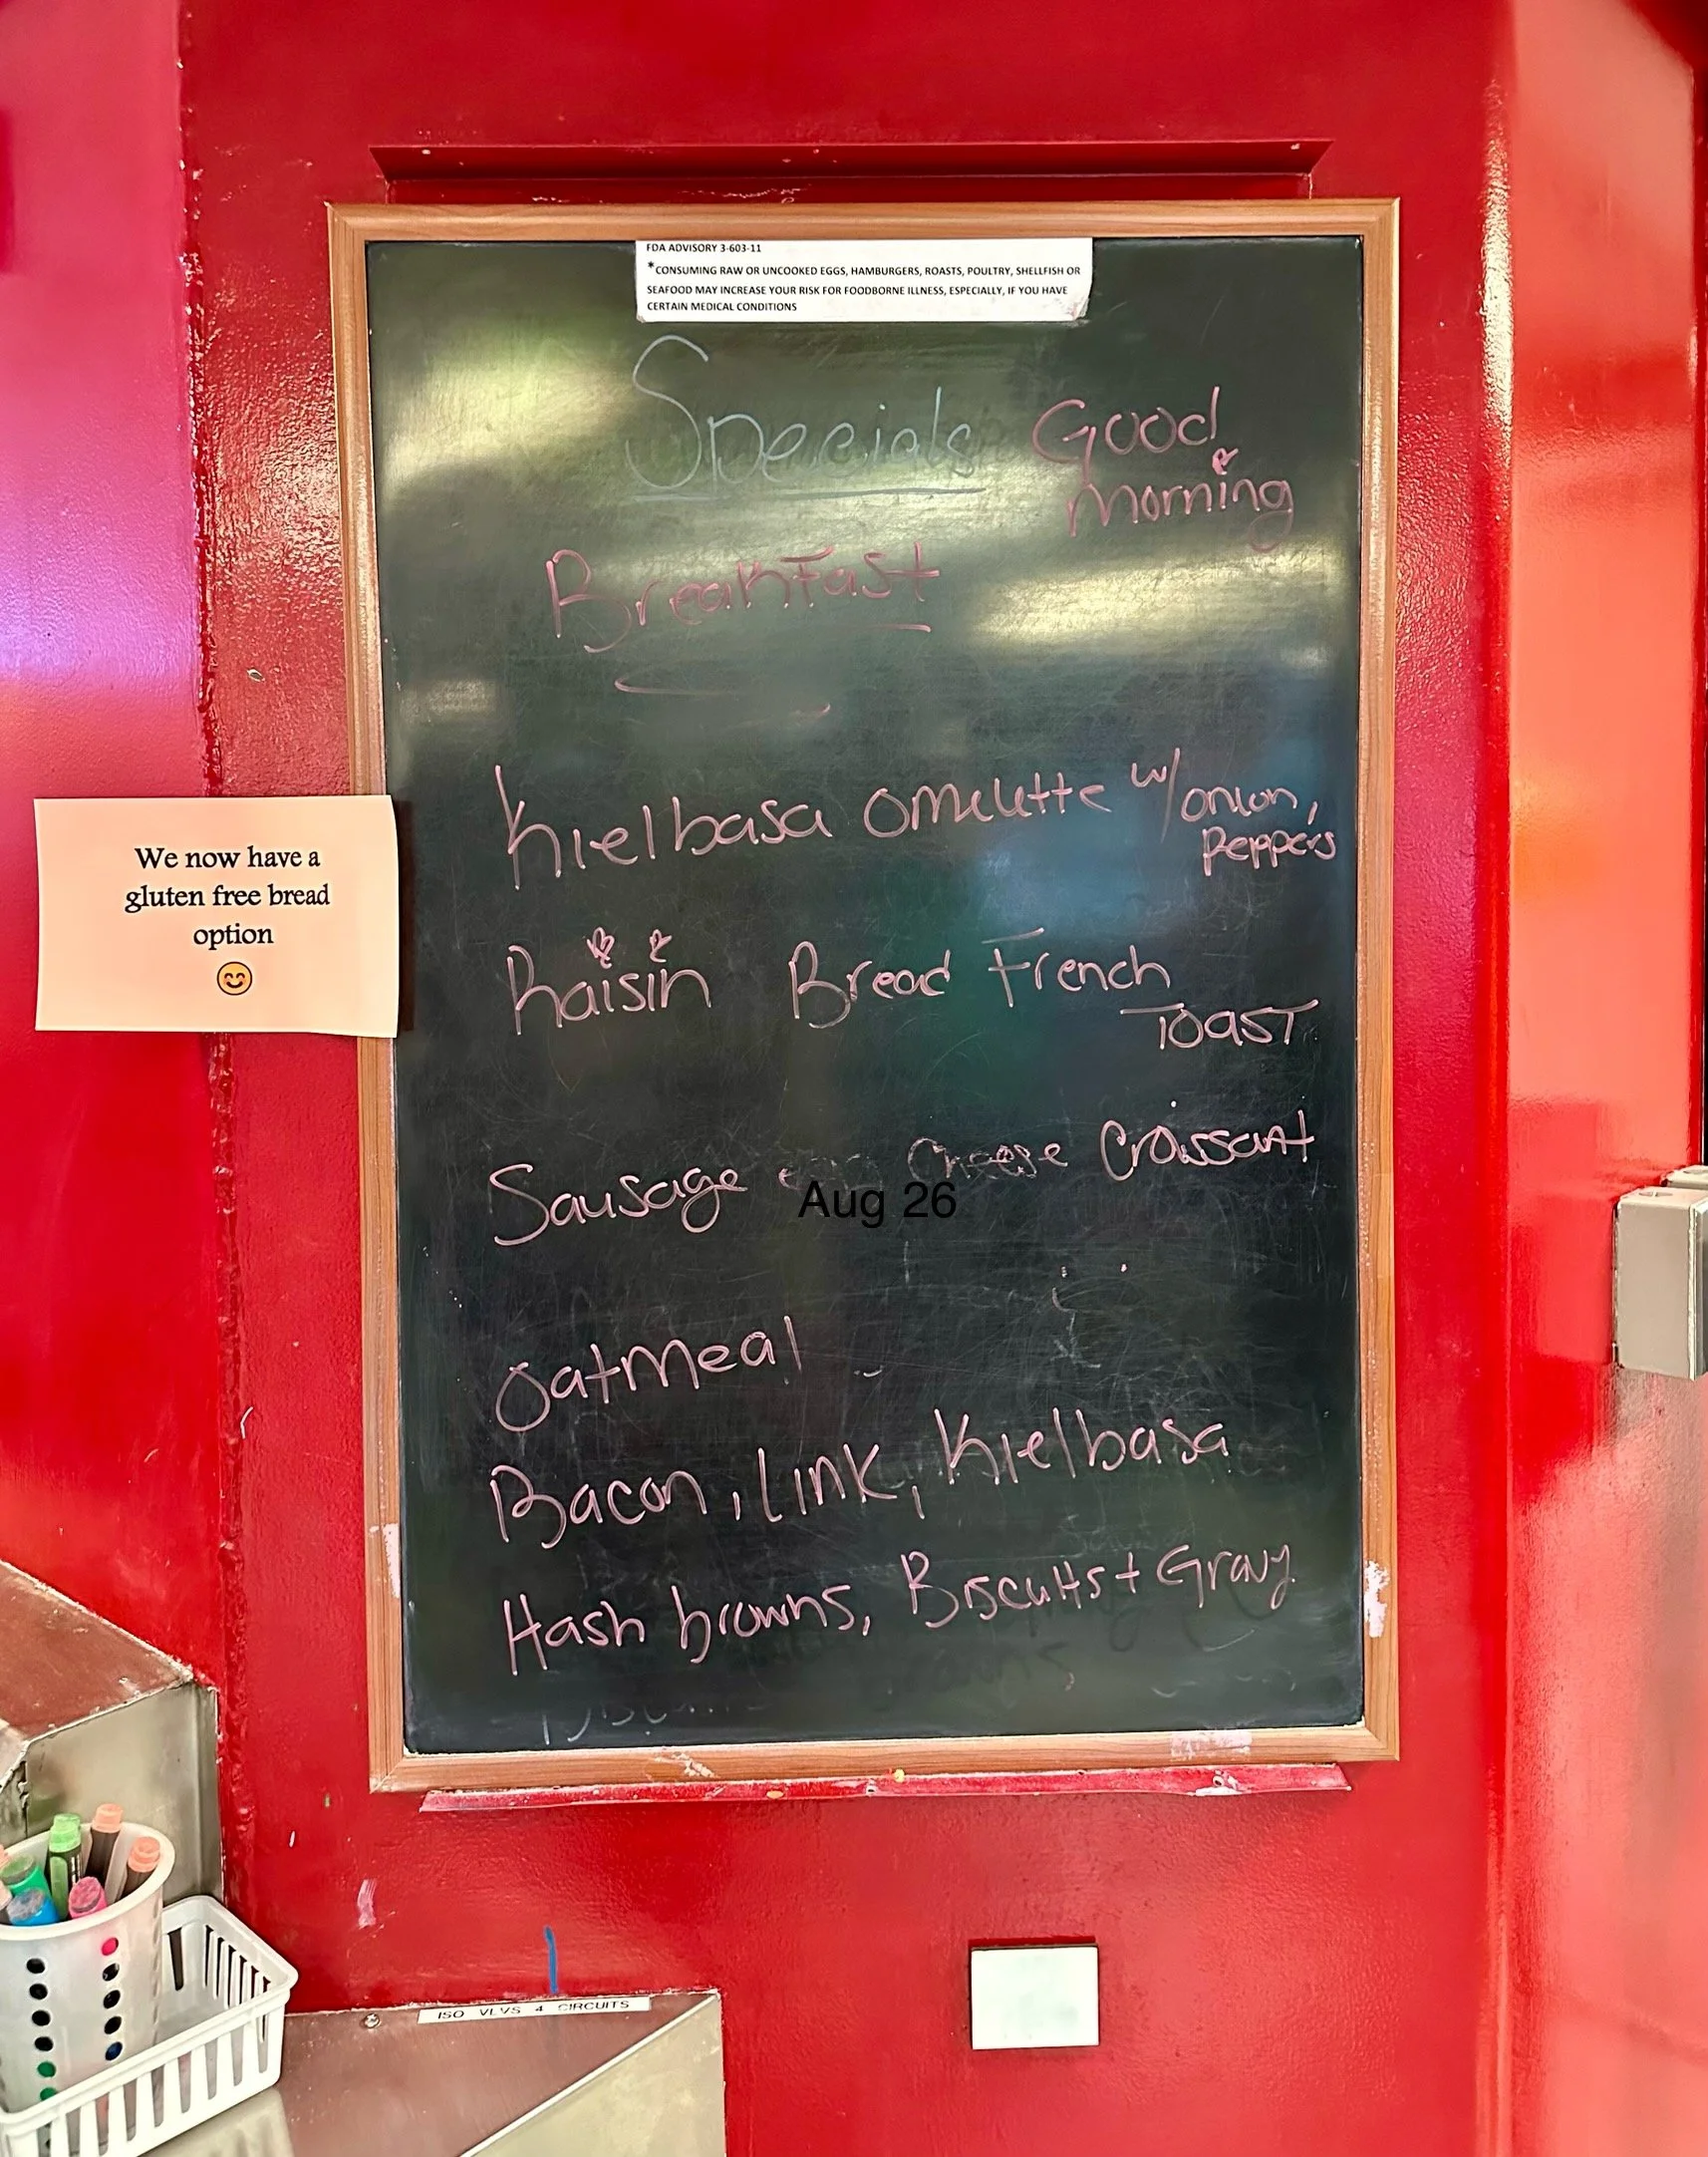 FDA ADVISORY 3-603-11
*CONSUMING RAW OR UNCOOKED EGGS, HAMBURGERS, ROASTS, POULTRY, SHELLFISH OR
SEAFOOD MAY INCREASE YOUR RISK FOR FOODBORNE ILLNESS, ESPECIALLY, IF YOU HAVE
CERTAIN MEDICAL CONDITIONS
Specials
Good
morning
Breakfast
Kielbasa omelette w/ onion,
Peppers
We now have a
gluten free bread
option
Raisin Bread French
Toast
Sausage Cheese Croissant
Aug 26
Oatmeal
Bacon, Link, Kielbasa
Hash browns, Biscuits + Gravy
ISO VLVS 4 CIRCUITS